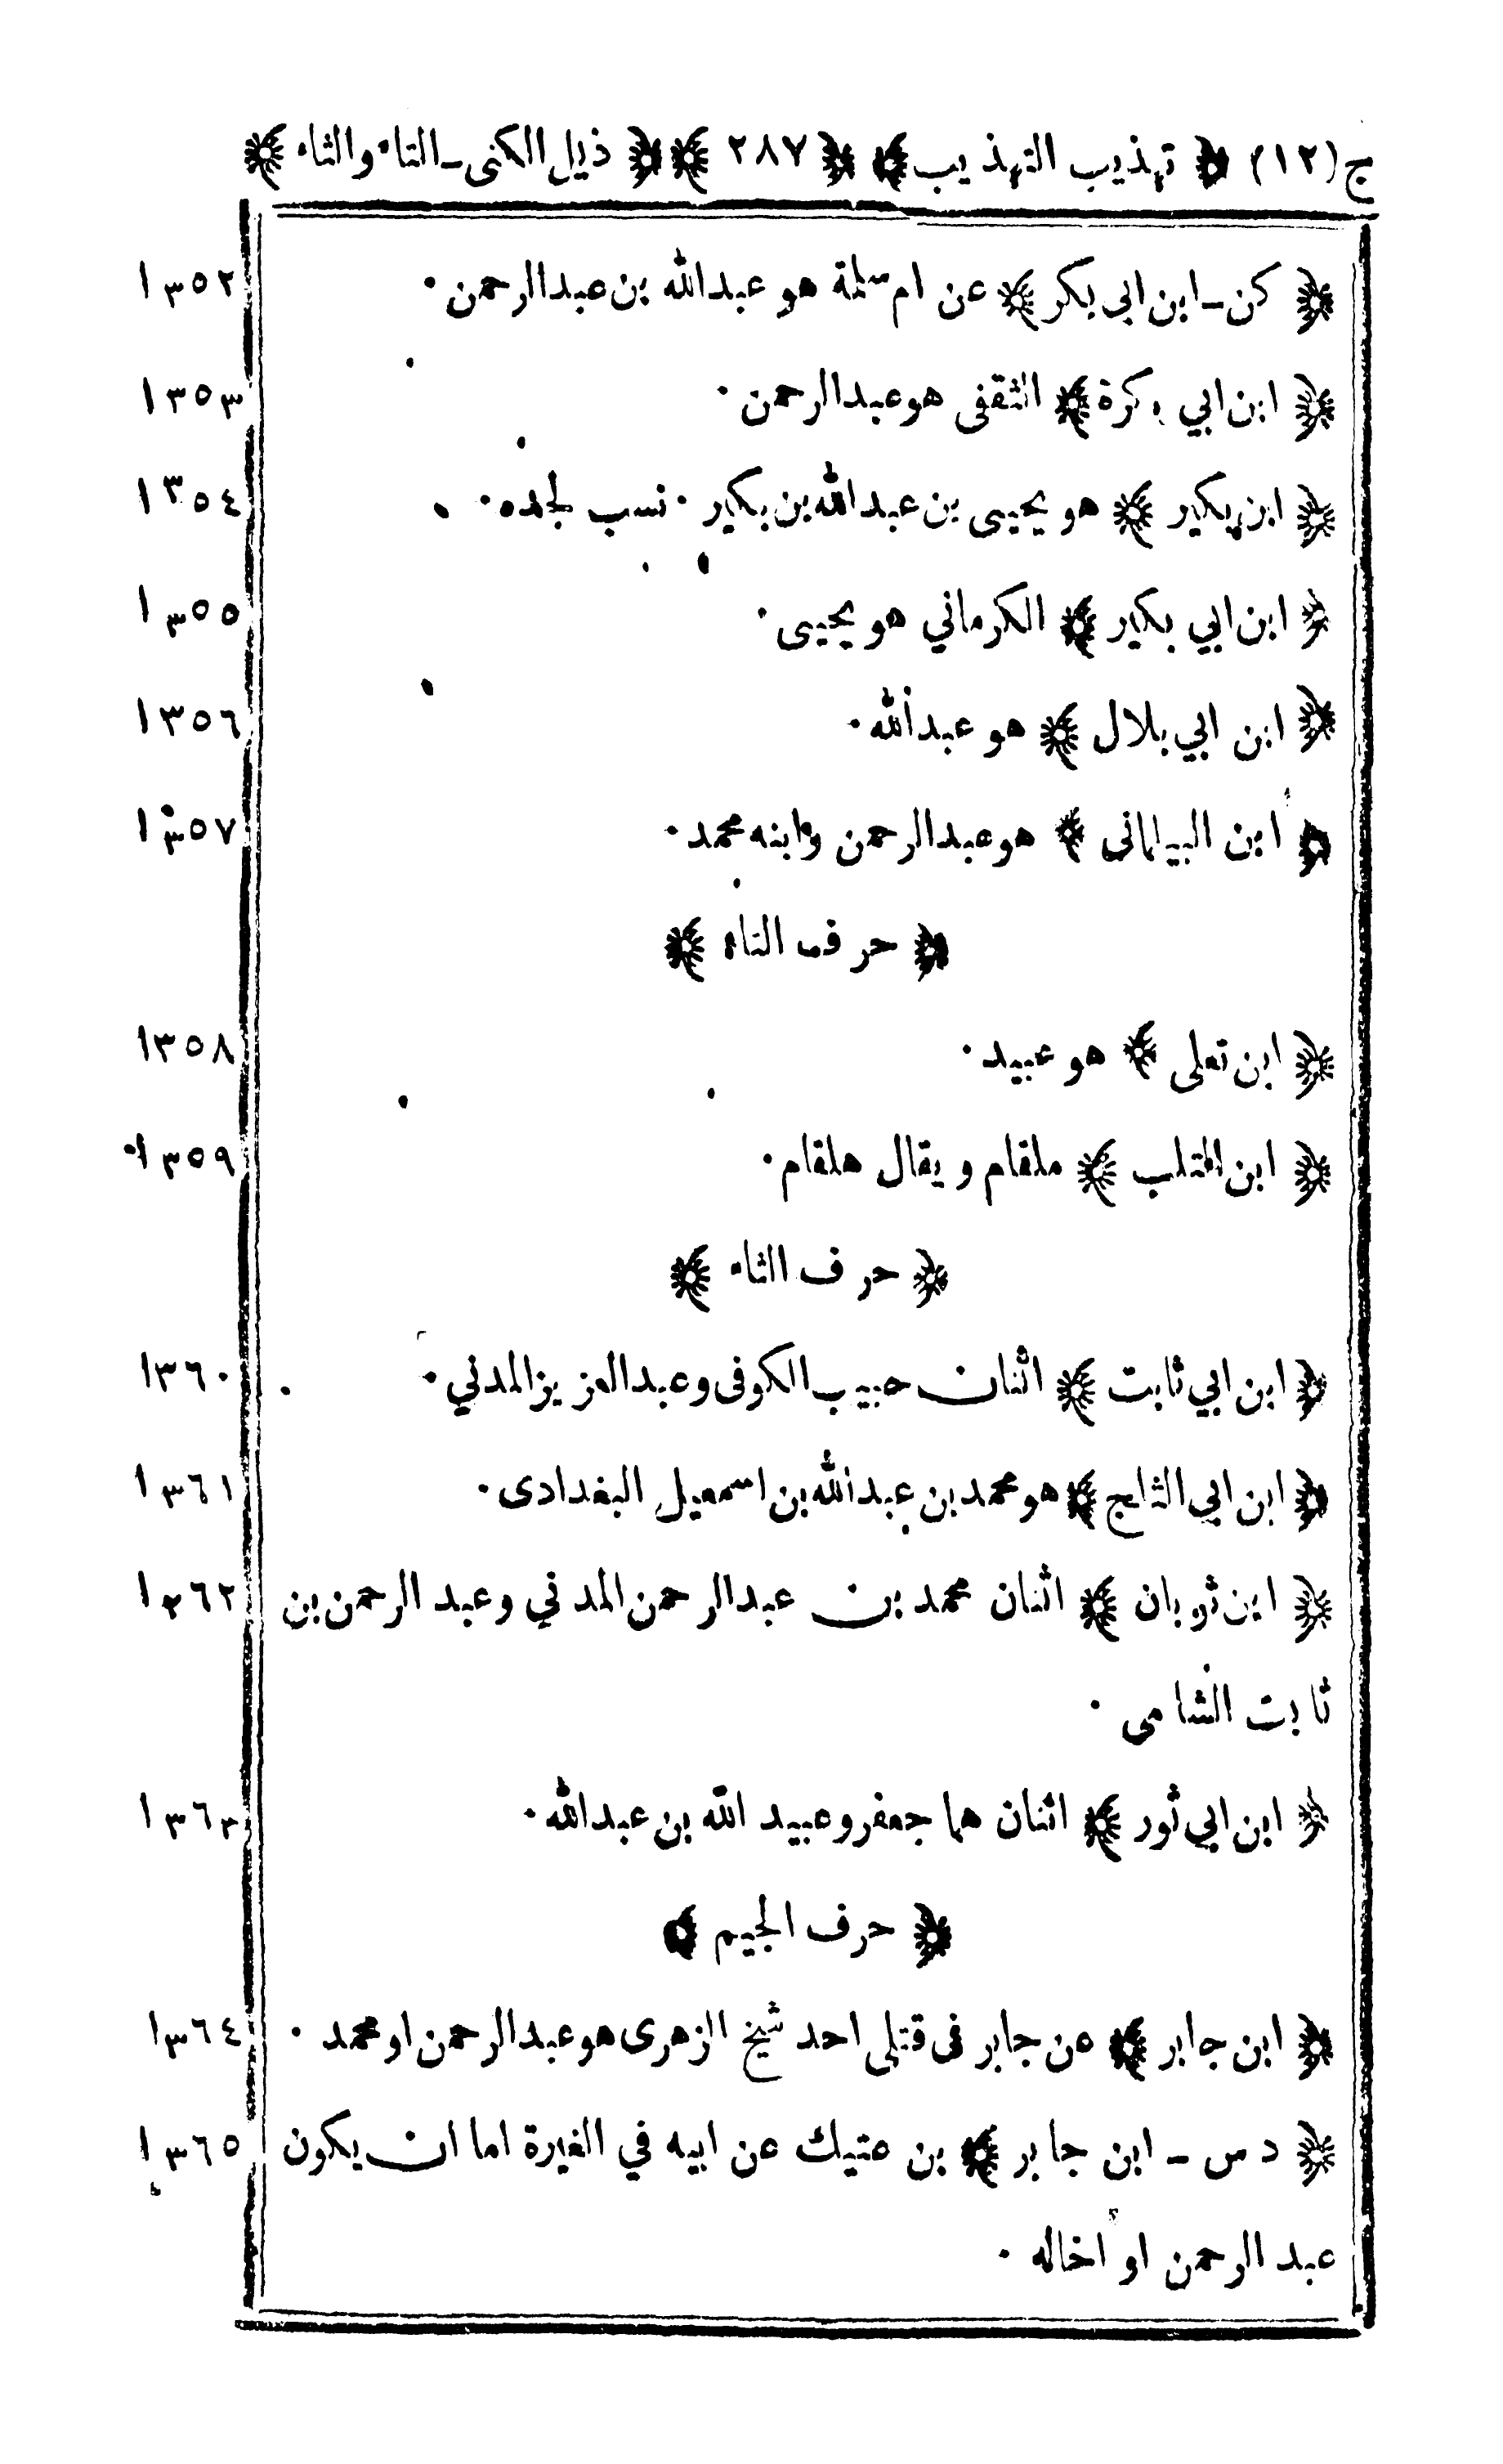 ج (١٢) ﴿ تهذيب التهذيب ﴾ ﴿ ٢٨٧ ﴾ ﴿ ذيل الكنى ـ التاء والثاء ﴾
﴿ كن ـ ابن ابى بكر ﴾ عن ام سلمة هو عبدالله بن عبدالرحمن · ١٣٥٢
﴿ ابن ابي بكرة ﴾ الثقفى هو عبدالرحمن · ١٣٥٣
﴿ ابن بكير ﴾ هو يحيى بن عبدالله بن بكير · نسب لجده · ١٣٥٤
﴿ ابن ابي بكير ﴾ الكرماني هو يحيى · ١٣٥٥
﴿ ابن ابي بلال ﴾ هو عبدالله · ١٣٥٦
﴿ ابن البيلمانى ﴾ هو عبدالرحمن وابنه محمد · ١٣٥٧
﴿ حرف التاء ﴾
﴿ ابن تعلى ﴾ هو عبيد · ١٣٥٨
﴿ ابن التلب ﴾ ملقام ويقال هلقام · ١٣٥٩
﴿ حرف الثاء ﴾
﴿ ابن ابي ثابت ﴾ اثنان حبيب الكوفى وعبدالعزيز المدني · ١٣٦٠
﴿ ابن ابي الثلج ﴾ هو محمد بن عبدالله بن اسمعيل البغدادى · ١٣٦١
﴿ ابن ثوبان ﴾ اثنان محمد بن عبدالرحمن المدني وعبد الرحمن بن ١٣٦٢
ثابت الشامى ·
﴿ ابن ابي ثور ﴾ اثنان هما جعفر وعبيد الله بن عبدالله · ١٣٦٣
﴿ حرف الجيم ﴾
﴿ ابن جابر ﴾ عن جابر فى قتلى احد شيخ الزهرى هو عبدالرحمن او محمد · ١٣٦٤
﴿ د س ـ ابن جابر ﴾ بن عتيك عن ابيه في الغيرة اما ان يكون ١٣٦٥
عبد الرحمن او اخاله ·